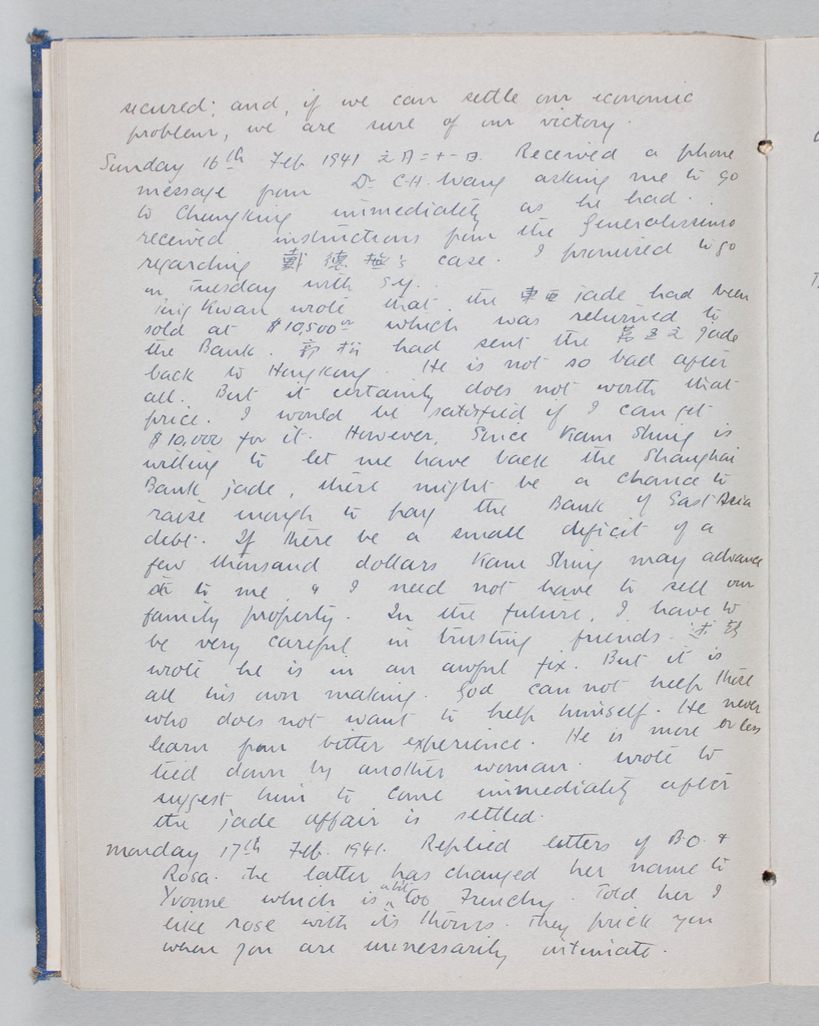 secured; and, if we can settle our economic
problem, we are sure of our victory.
Sunday 16th Feb 1941 正月二十一日. Received a phone
message from Dr. C.H. Wang asking me to go
to Chungking immediately as he had
received instructions from the Generalissimo
regarding 戴德撫's case. I promised to go
on Tuesday with S.Y.
Ting Kwan wrote that the 東亞 jade had been
sold at $10,500 which was returned to
the Bank. had sent the jade
back to Hongkong. He is not so bad after
all. But it certainly does not worth that
price. I would be satisfied if I can get
$10,000 for it. However, since Kam Shing is
willing to let me have back the Shanghai
Bank jade, there might be a chance to
raise enough to pay the Bank of East Asia
debt. If there be a small deficit of a
few thousand dollars Kam Shing may advance
it to me, & I need not have to sell our
family property. In the future, I have to
be very careful in trusting friends.
wrote he is in an awful fix. But it is
all his own making. God can not help there
who does not want to help himself. He never
learn from bitter experience. He is more or less
tied down by another woman. Wrote to
suggest him to come immediately after
the jade affair is settled.
Monday 17th Feb. 1941. Replied letters of B.O. &
Rosa. The latter has changed her name to
Yvonne which is a bit too Frenchy. Told her I
like rose with its thorns. They prick you
when you are unnessarily intimate.